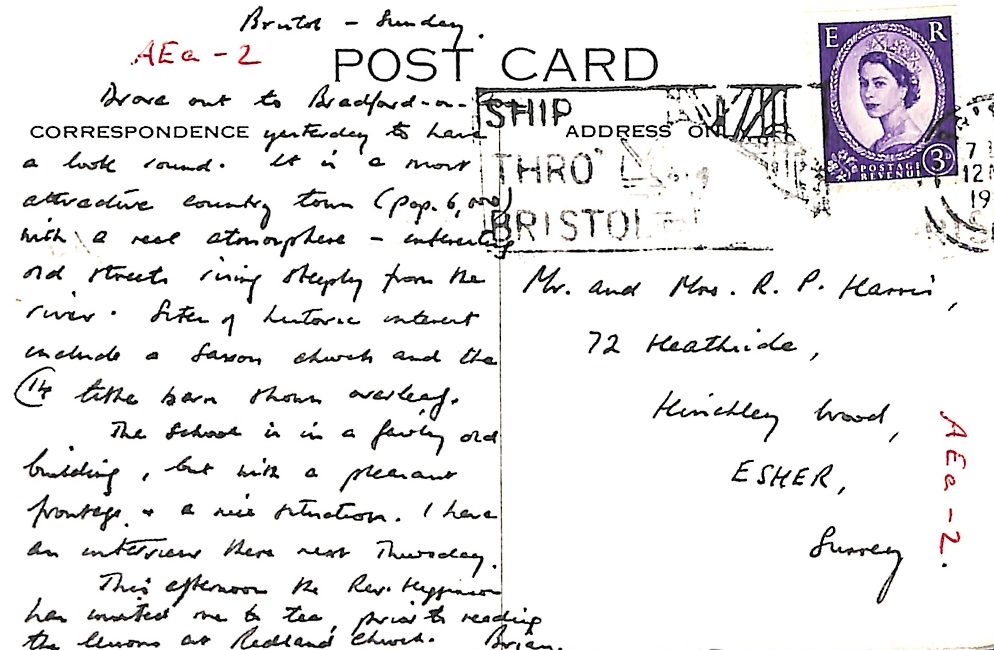 Bristol – Sunday.
AEa-2
POST CARD
Drove out to Bradford-on-
CORRESPONDENCE
yesterday to have
a look round. It is a most
attractive country town (pop. 6,000)
with a real atmosphere – interesting
old streets rising steeply from the
river. Sites of historic interest
include a Saxon church and the
C14 tithe barn shown overleaf.
The School is in a fairly old
building, but with a pleasant
frontage & a nice situation. I have
an interview there next Thursday.
This afternoon the Rev. Higginson
has invited me to tea, prior to reading
the lessons at Redland Church. Brian.
ADDRESS ONLY
SHIP
THRO'
BRISTOL
E R
POSTAGE
REVENUE
3D
7
12
19
Mr. and Mrs. R. P. Harris,
72 Heathside,
Hinchley Wood,
ESHER,
Surrey
AEa-2.